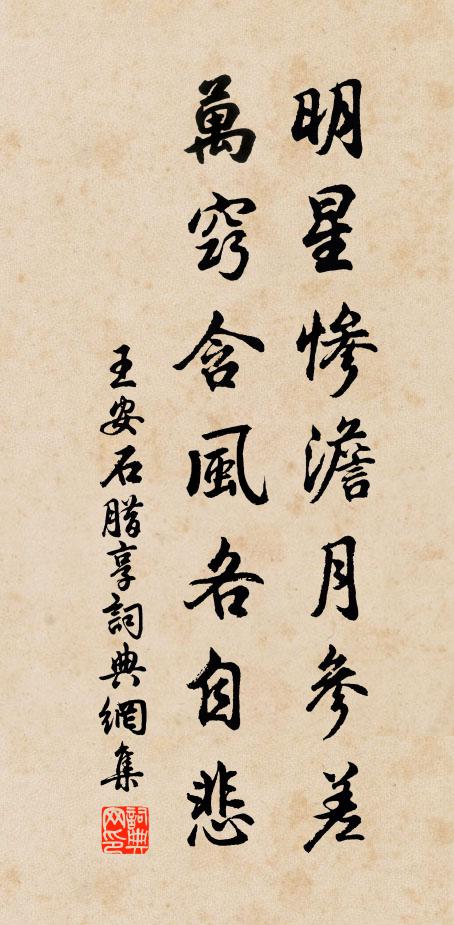 明星慘澹月參差
萬竅含風各自悲
王安石腊享詞典網集
詞典网印